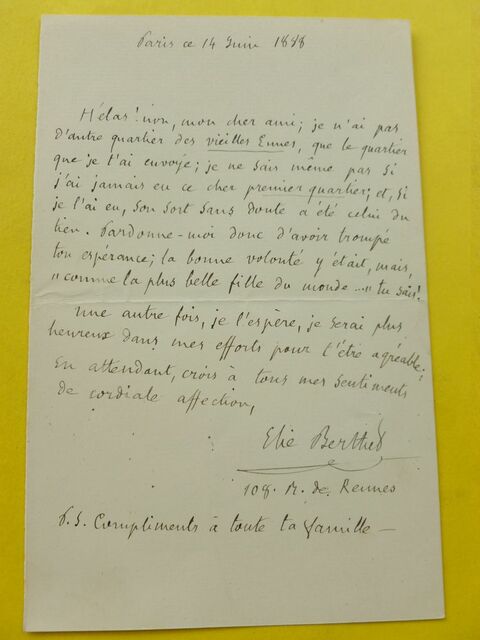 Paris ce 14 Juin 1888
Hélas! non, mon cher ami; je n'ai pas
d'autre quartier des vieilles Ennes, que le quartier
que je t'ai envoyé; je ne sais même pas si
j'ai jamais eu ce cher premier quartier; et, si
je l'ai eu, son sort sans doute a été celui du
tien. Pardonne-moi donc d'avoir trompé
ton espérance; la bonne volonté y était, mais,
"comme la plus belle fille du monde..." tu sais!
Une autre fois, je l'espère, je serai plus
heureux dans mes efforts pour t'être agréable;
En attendant, crois à tous mes sentiments
de cordiale affection,
Elie Berthet
108. R. de Rennes
P.S. Compliments à toute ta famille —